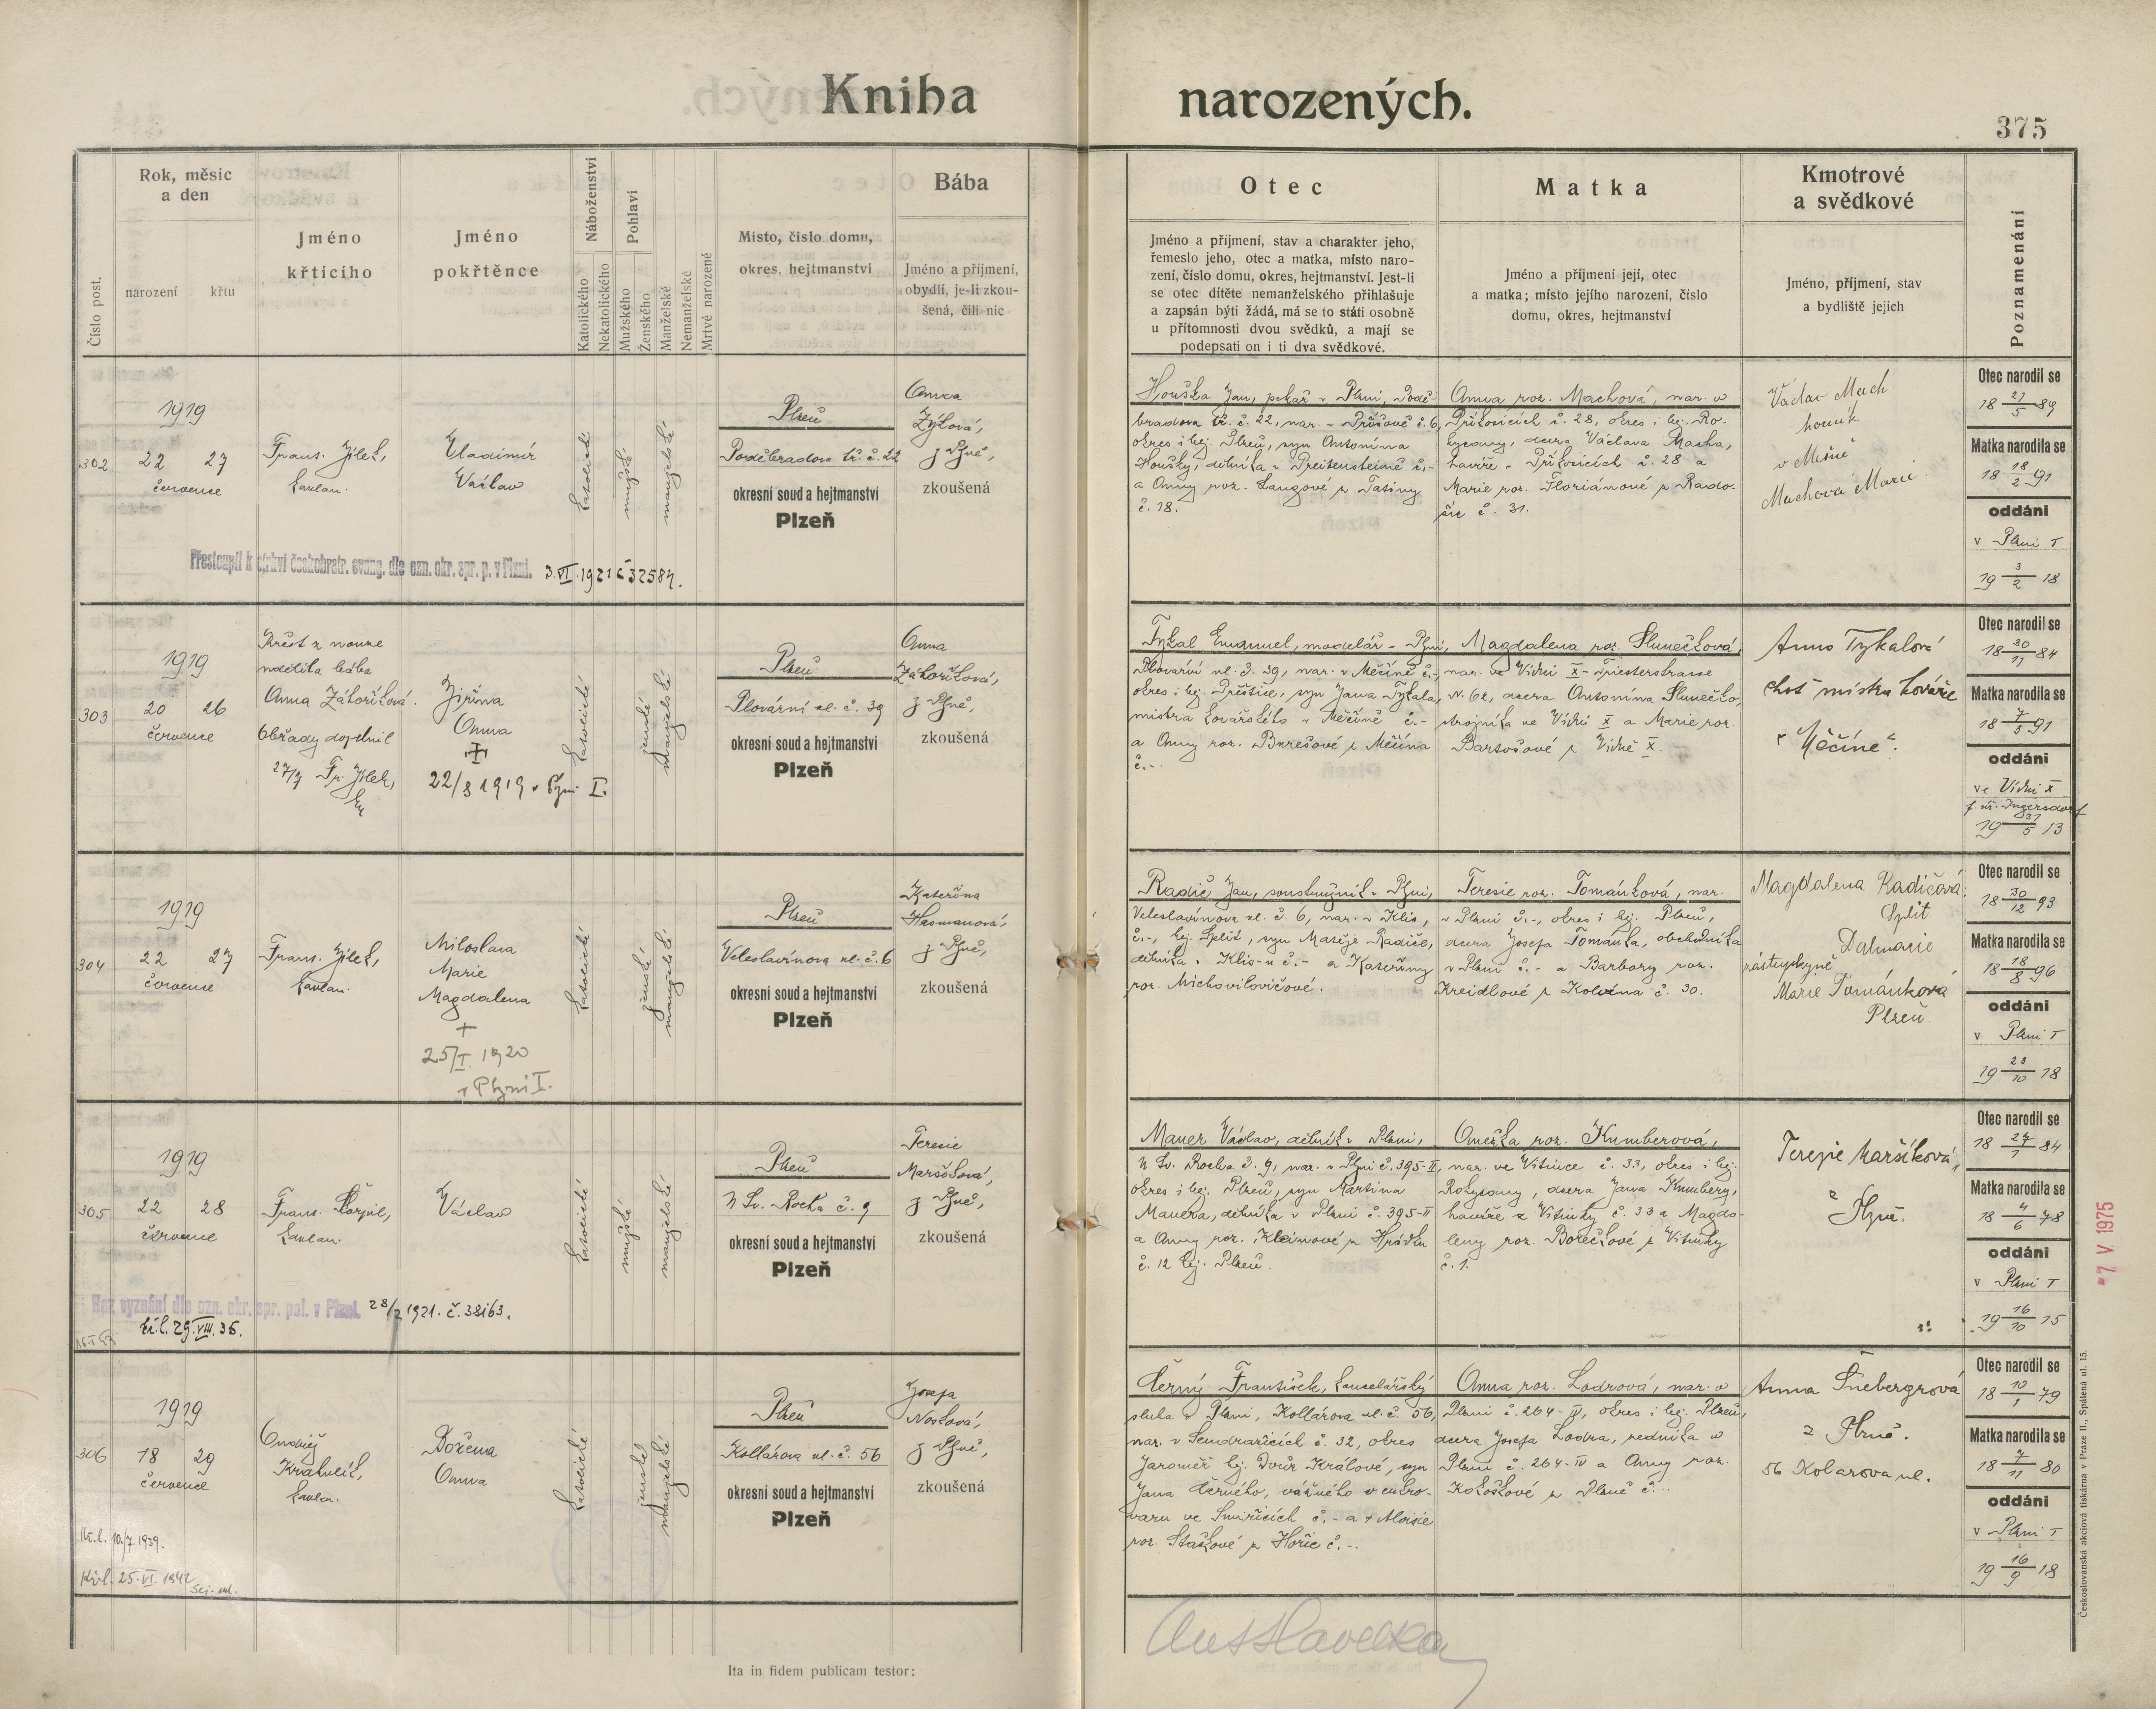 Kniha narozených.
375
Číslo post.
Rok, měsíc
a den
narození
křtu
Jméno
křticího
Jméno
pokřtěnce
Náboženství
Katolického
Nekatolického
Pohlaví
Mužského
Ženského
Manželské
Nemanželské
Mrtvě narozené
Místo, číslo domu,
okres, hejtmanství
Bába
Jméno a příjmení,
obydlí, je-li zkou-
šená, čili nic
Otec
Jméno a příjmení, stav a charakter jeho,
řemeslo jeho, otec a matka, místo naro-
zení, číslo domu, okres, hejtmanství. Jest-li
se otec dítěte nemanželského přihlašuje
a zapsán býti žádá, má se to státi osobně
u přítomnosti dvou svědků, a mají se
podepsati on i ti dva svědkové.
Matka
Jméno a příjmení její, otec
a matka; místo jejího narození, číslo
domu, okres, hejtmanství
Kmotrové
a svědkové
Jméno, příjmení, stav
a bydliště jejich
Poznamenání
302
1919
22 27
července
Frant. Jílek,
kaplan.
Vladimír
Václav
katolické
mužské
manželské
Plzeň
Poděbradova tř. č. 22
okresní soud a hejtmanství
Plzeň
Anna
Zýková,
z Plzně,
zkoušená
Přestoupil k církvi českobratr. evang. dle ozn. okr. spr. p. v Plzni. 3.VI.1921 č 32584.
Houška Jan, pekař v Plzni, Podě-
bradova tř. č. 22, nar. v č. 6,
okres i hej. Plzeň, syn Antonína
Houšky, dělníka v Preitensteině č.-
a Anny roz. Langové z Tatiny
č. 18.
Anna roz. Machová, nar. v
Příkosicích č. 28, okres i hej. Ro-
kycany, dcera Václava Macha,
havíře v Příkosicích č. 28 a
Marie roz. Floriánové z Rado-
šic č. 31.
Václav Mach
horník
v Mešně
Machová Marie
Otec narodil se
18 21/5 89
Matka narodila se
18 18/2 91
oddáni
v Plzni I
19 3/2 18
303
1919
20 26
července
Křest z nouze
udělila bába
Anna Záhoříková.
Obřady doplnil
27/7 Fr. Jílek,
Jiřina
Anna
+
22/8 1919 v Plzni I.
katolické
ženské
manželské
Plzeň
Plovární ul. č. 39
okresní soud a hejtmanství
Plzeň
Anna
Záhoříková,
z Plzně,
zkoušená
Tykal Emanuel, modelář v Plzni,
Plovární ul. č. 39, nar. v Měčíně č.-,
okres i hej. Přeštice, syn Jana Tykala,
mistra kovářského v Měčíně č.-
a Anny roz. Burešové z Měčína
č.-.
Magdalena roz. Slunečková,
nar. ve Vídni X - Triesterstrasse
N. 62, dcera Antonína Slunečko,
strojníka ve Vídni X a Marie roz.
Bartošové z Vídně X.
Anna Tykalová
choť mistra kováře
v "Měčíně".
Otec narodil se
18 30/11 84
Matka narodila se
18 7/5 91
oddáni
ve Vídni X
19 31/5 13
304
1919
22 27
července
Frant. Jílek,
kaplan.
Miloslava
Marie
Magdalena
+
25/I. 1920
v Plzni I.
katolické
ženské
manželské
Plzeň
Veleslavínova ul. č. 6
okresní soud a hejtmanství
Plzeň
Kateřina
Hasmanová,
z Plzně,
zkoušená
Radič Jan, soustružník v Plzni,
Veleslavínova ul. č. 6, nar. v Klis,
č.-, hej. Split, syn Matěje Radiče,
dělníka v Klis-u č.- a Kateřiny
roz. Michovilovičové.
Teresie roz. Tománková, nar.
v Plzni č.-, okres i hej. Plzeň,
dcera Josefa Tománka, obchodníka
v Plzni č.- a Barbory roz.
Kreidlové z Kolvína č. 30.
Magdalena Radičová
Split
Dalmacie
zástupkyně
Marie Tománková
Plzeň.
Otec narodil se
18 30/12 93
Matka narodila se
18 18/8 96
oddáni
v Plzni I
19 23/10 18
305
1919
22 28
července
Frant. Škorpil,
kaplan.
Václav
katolické
mužské
manželské
Plzeň
U Sv. Rocha č. 9
okresní soud a hejtmanství
Plzeň
Teresie
Maršíková,
z Plzně,
zkoušená
Bez vyznání dle ozn. okr. spr. pol. v Plzni. 28/2 1921. č. 38163.
kř.l. 29.VIII.36.
Mauer Václav, dělník v Plzni,
U Sv. Rocha č. 9, nar. v Plzni č. 395-II,
okres i hej. Plzeň, syn Martina
Mauera, dělníka v Plzni č. 395-II
a Anny roz. Kleinové z Hrádku
č. 12 hej. Plzeň.
Anežka roz. Kumberová,
nar. ve Vitince č. 33, okres i hej.
Rokycany, dcera Jana Kumbery,
havíře z Vitinky č. 33 a Magda-
leny roz. Borečkové z Vitinky
č. 1.
Terezie Maršíková,
z Plzně.
Otec narodil se
18 27/1 84
Matka narodila se
18 4/6 78
oddáni
v Plzni I
19 16/10 15
-7. V 1975
306
1919
18 29
července
Ondřej
Krahulík,
kaplan.
Božena
Anna
katolické
ženské
manželské
Plzeň
Kollárova ul. č. 56
okresní soud a hejtmanství
Plzeň
Josefa
Nosková,
z Plzně,
zkoušená
Kř.l. 10./7. 1939.
Kř.l. 25.VI. 1942
Černý František, kancelářský
sluha v Plzni, Kollárova ul. č. 56,
nar. v Sendražicích č. 32, okres
Jaroměř hej. Dvůr Králové, syn
Jana Černého, vážného v cukro-
varu ve Smiřicích č.- a + Aloisie
roz. Stáškové z Hořic č.-.
Anna roz. Lodrová, nar. v
Plzni č. 264-IV, okres i hej. Plzeň,
dcera Josefa Lodra, zedníka v
Plzni č. 264-IV a Anny roz.
Kokoškové z Plzně č.-.
Anna Šnebergrová
z Plzně.
56 Kolarova ul.
Otec narodil se
18 10/1 79
Matka narodila se
18 7/11 80
oddáni
v Plzni I
19 16/9 18
Ita in fidem publicam testor:
Ant Havelka
Českoslovanská akciová tiskárna v Praze II., Spálená ul. 15.